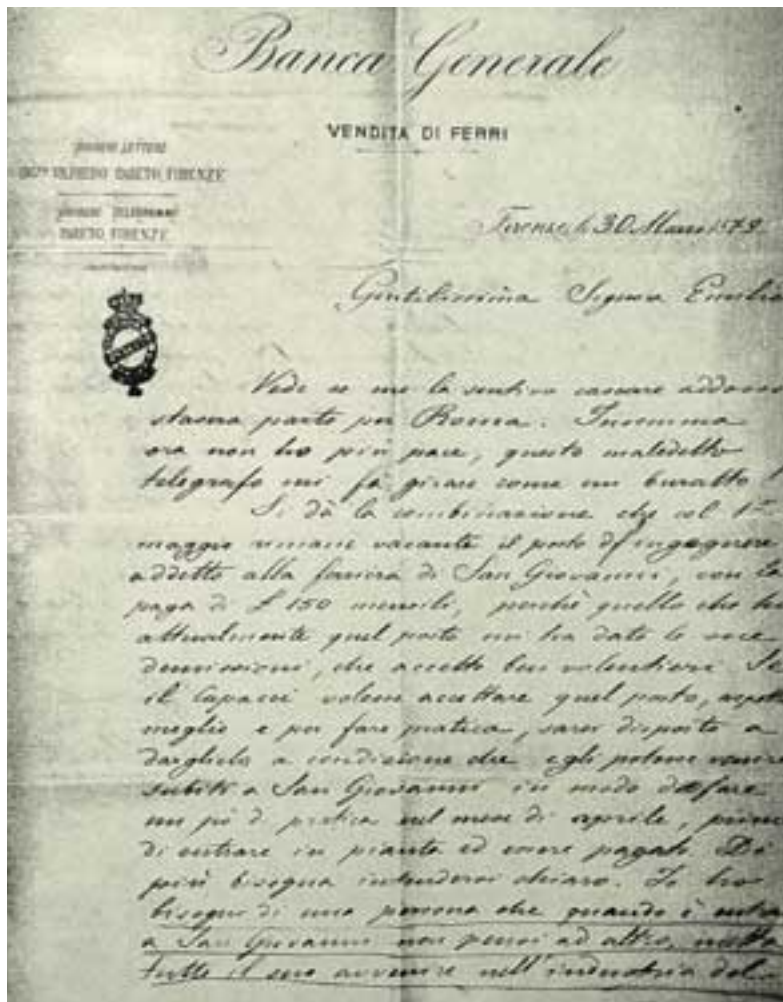 Banca Generale
VENDITA DI FERRI
INDIRIZZO LETTERE
INGre VILFREDO PARETO, FIRENZE
INDIRIZZO TELEGRAMMI
PARETO FIRENZE
Firenze, li 30 Marzo 1879
Gentilissima Signora Emilia
Vede se me la sentivo cascare addosso
stasera parto per Roma. Insomma
ora non ho più pace, questo maledetto
telegrafo mi fa girare come un buratto!
Si dà la combinazione che col 1º
maggio rimane vacante il posto d'ingegnere
addetto alla ferriera di San Giovanni, con la
paga di £ 150 mensili, perchè quello che ha
attualmente quel posto mi ha dato le sue
demissioni, che accetto ben volentieri. Se
il Capacci volesse accettare quel posto,
meglio e per fare pratica, sarei disposto a
darglielo a condizione che egli potesse venire
subito a San Giovanni in modo da fare
un pò di pratica nel mese di aprile, prima
di entrare in pianta ed essere pagato. Di
più bisogna intendersi chiaro. Io ho
bisogno di una persona che quando è entrata
a San Giovanni non pensi ad altro, metta
tutto il suo avvenire nell'industria del